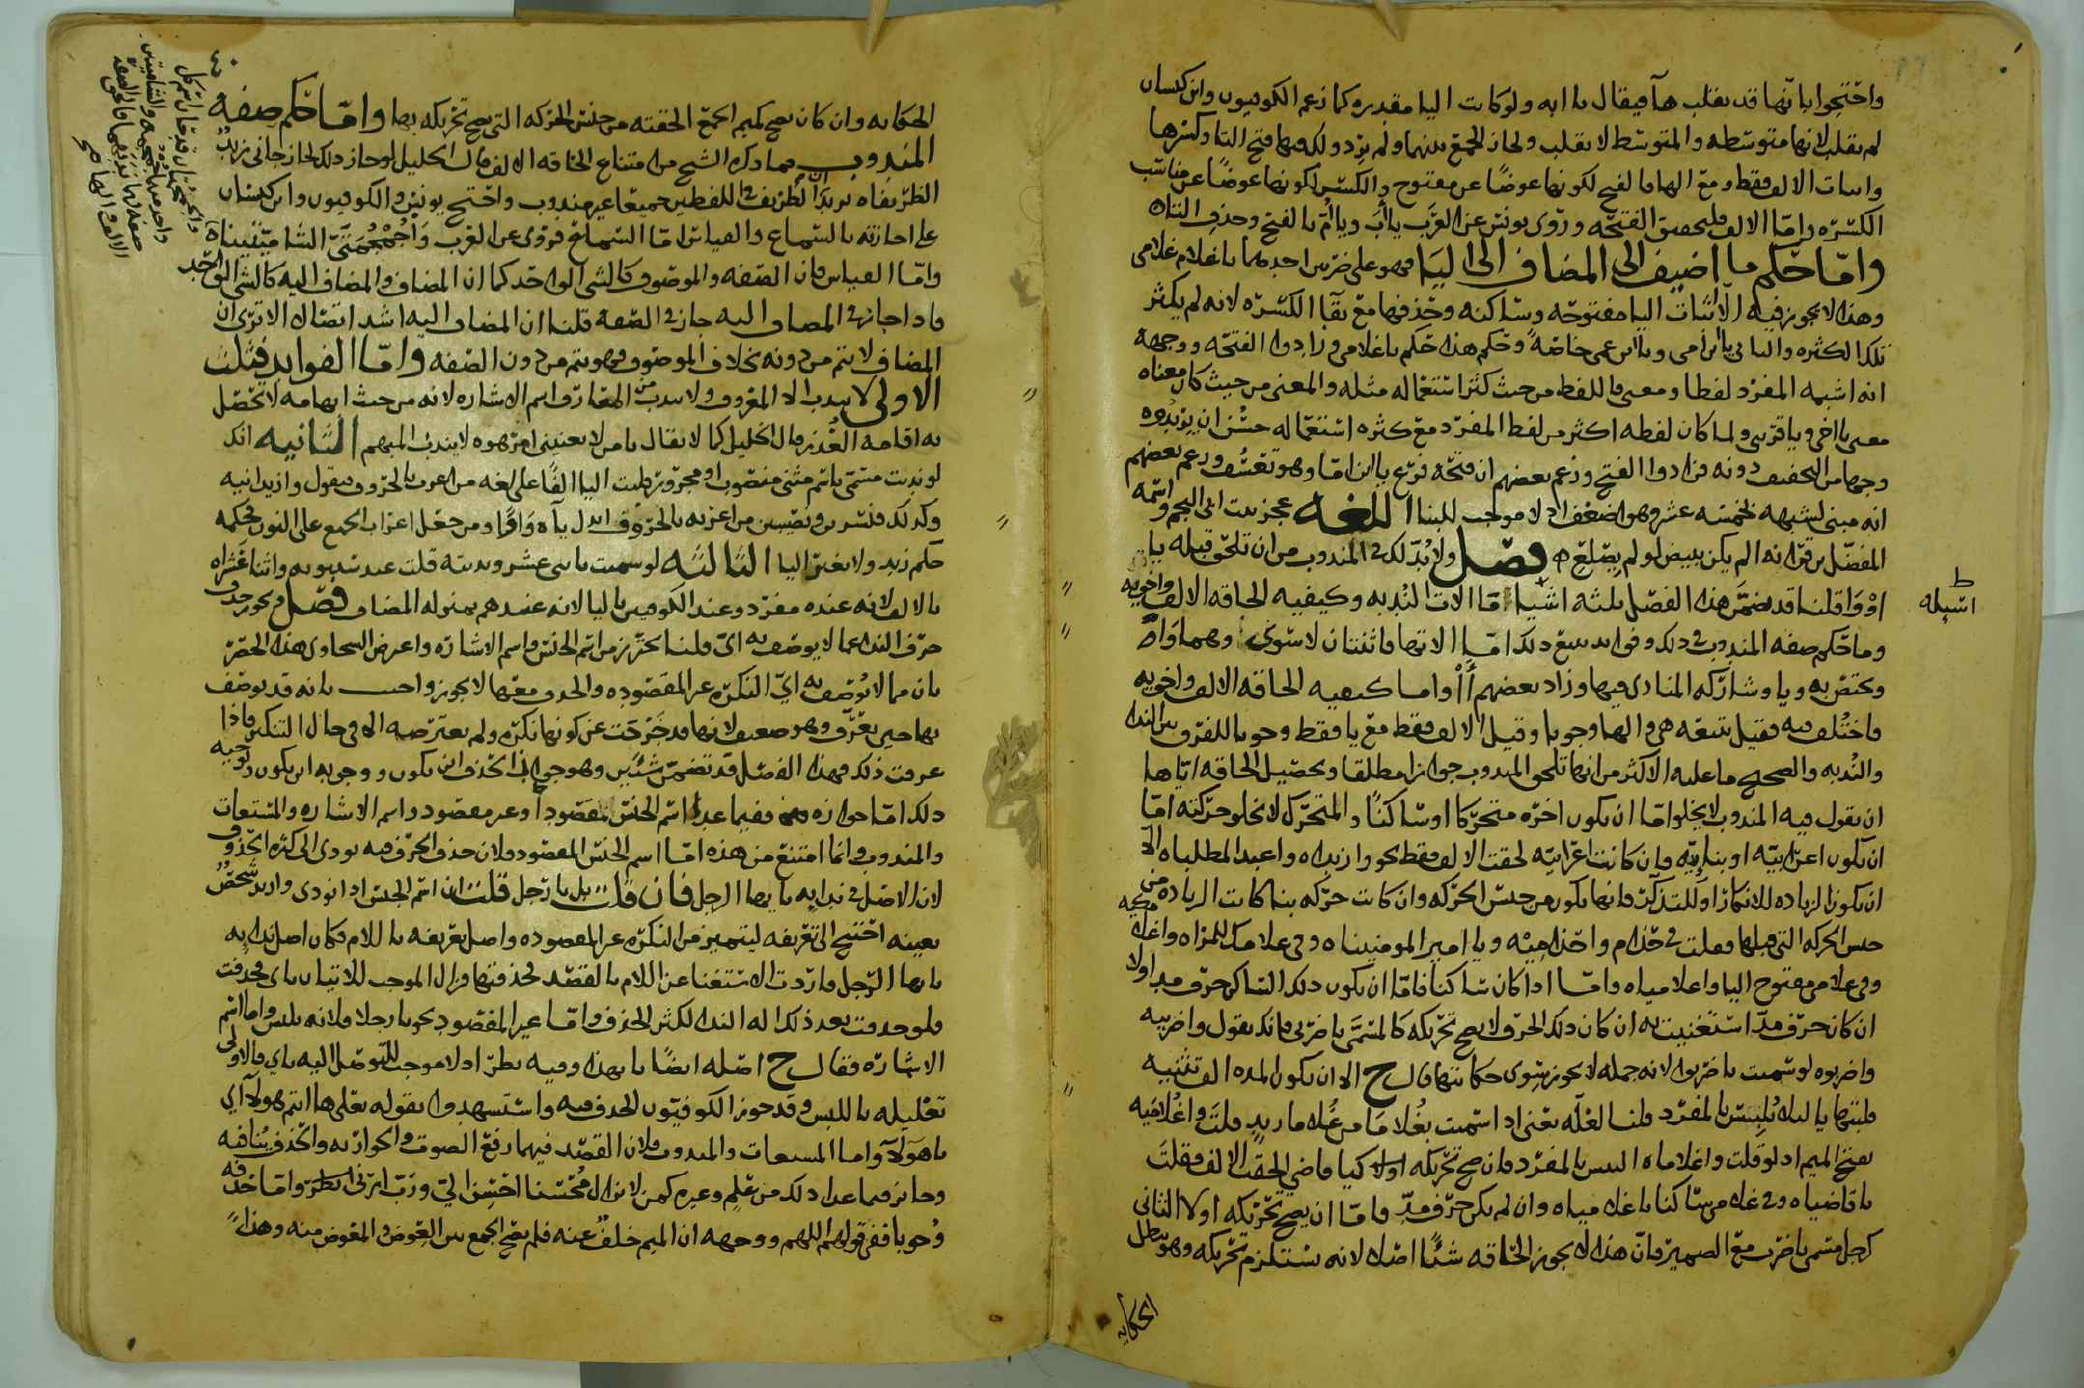 واحتجوا بانها قد تقلب هآ فيقال يا ابه ولو كانت اليا مقدره كما زعم الكوفيون وابن كيسان
لم تقلب لانها متوسطه والمتوسط لا يقلب ولجاز الجمع بينهما ولم يرد ولك فيها فتح التا وكسرها
واثبات الالف فقط ومع الها فالفتح لكونها عوضًا عن مفتوح والكسر لكونها عوضًا عن مناسب
الكسره واما الالف فلتحقيق الفتحه وروى يونس عن العرب يا اب ويا ام بالفتح وحذف التاء
واما حكم ما اضيف الى المضاف الى اليا فهو على ضربين احدهما يا غلام غلامي
وهذا لا يجوز فيه الا اثبات اليا مفتوحه وساكنه وحذفها مع بقآ الكسره لانه لم يكثر
تلك الكثره والثاني يا ابن امي ويا ابن عمي خاصةً وحكم هذا حكم يا غلامي وزادوا الفتحه ووجهه
انه اشبه المفرد لفظا ومعنى فاللفظ من حيث كثر استعماله مثله والمعنى من حيث كان معناه
معنى يا اخي ويا قريبي ولما كان لفظه اكثر من لفظ المفرد مع كثره استعماله حسُن ان يزيدوه
وجها من التخفيف دونه فزادوا الفتح وزعم بعضهم ان فتحه فرع يا ابن اما وهو تعسف وزعم بعضهم
انه مبني لشبهه بخمسه عشر وهو اضعف اذ لا موجب للبنا اللغه عجز بيت ابي النجم واسمه
المفضل من قرانه الم يكن يبيض لو لم يصلع ه فصل ولا بد لك في المندوب من ان تلحق قبله يا
او وا قلنا قد تضمن هذا الفصل ثلثه اشيا اما الات الندبه وكيفيه الحاقه الالف واخويه
وما حكم صفه المندوب في ذلك وفوايد تتبع ذلك اما الاتها فاثنتان لا سوى وهما وا
وتختص به ويا وشاركه المنادى فيها وزاد بعضهم أأ واما كيفيه الحاقه الالف واخويه
فاختُلف فيه فقيل تتبعه هي والها وجوبا وقيل الالف فقط مع يا فقط وجوبا للفرق بين الندا
والندبه والصحيح ما عليه الاكثر من انها تلحق المندوب جوازا مطلقا وتحصيل الحاقه اياها
ان يقول فيه المندوب لا يخلو اما ان يكون اخره متحركا او ساكنًا والمتحرك لا تخلو حركته اما
ان تكون اعرابيه او بنائيه فان كانت اعرابيه لحقت الالف فقط نحو وا زيداه وا عبد المطلباه الا
ان تكون الزياده للانكار او للتذكر فانها تكون من جنس الحركه وان كانت حركه بنا كانت الزياده من
جنس الحركه التي قبلها فقلت في حذام وا حذاميه ويا امير المومنيناه وفي غلامك للمراه وا غلامكيه
وفي غلامي مفتوح اليا وا غلامياه واما اذا كان ساكنًا فاما ان يكون ذلك الساكن حرف مد اولا
ان كان حرف مد استغنيت به ان كان ذلك الحرف لا يصح تحريكه كالمسمى باضربي فانك تقول وا ضربيه
واضربوه لو سميت باضربوا لانه جمله لا يجوز سوى حكايتها قال ح الا ان يكون المده الف تثنيه
قلبتها يا لئلا تلتبس بالمفرد قلنا لعله يعني اذا سميت بغلاما من غلاما زيد قلت وا غلاميه
بفتح الميم اذ لو قلت وا غلاماه التبس بالمفرد فان صح تحريكه اولا كيا قاضي الحقت الالف فقلت
يا قاضياه وفي غلامي ساكنا يا غلامياه وان لم يكن حرف مد فاما ان يصح تحريكه اولا الثاني
كرجل مسمى باضرب مع الضمير فان هذا لا يجوز الحاقه شئًا اصلا لانه يستلزم تحريكه وهو يبطل
الحكايه
اسبله
ط
الحكايه وان كان يصح كميم الجمع الحقته من جنس الحركه التي يصح تحريكه بها واما حكم صفه
المندوب فما ذكره الشيخ من امتناع الحاقه الالف قال الخليل لو جاز ذلك لجاز جاني زيدٌ
الظريفاه يريد ان الظريف في اللفظين جميعًا غير مندوب واحتج يونس والكوفيون وابن كيسان
على اجازته بالسماع والقياس اما السماع فروى عن العرب وا جُمجُمتَيَّ الشاميتيناه
واما القياس فان الصفه والموصوف كالشي الواحد كما ان المضاف والمضاف اليه كالشي الواحد
فاذا جاز في المضاف اليه جاز في الصفه قلنا ان المضاف اليه اشد اتصالا الا ترى ان
المضاف لا يتم من دونه بخلاف الموصوف فهو يتم من دون الصفه واما الفوايد فثلث
الاولى لا يندب الا المعروف ولا يندب من المعارف اسم الاشاره لانه من حيث ابهامه لا تحصل
به اقامه العُذر قال الخليل كما لا يقال يا من لا يعنيني امر هوه لا يندب المبهم الثانيه انك
لو ندبت مسمى باسم مثنى منصوب او مجرور قلبت اليا الفًا على لغه من اعرب بالحروف فيقول وا زيدانيه
وكذلك قنسرين ونصيبين من اعربه بالحروف ابدل ياه واوا ومن جعل اعراب الجمع على النون فحكمه
حكم زيد ولا يغير اليا الثالثه لو سميت باثني عشر وندبته قلت عند سيبويه واثنا عشراه
بالالف لانه عنده مفرد وعند الكوفيين باليا لانه عندهم بمنزله المضاف فصل ويجوز حذف
حرف الندا عما لا يوصف به اي قلنا يحترز من اسم الجنس واسم الاشاره واعرض السخاوي هذا الحصر
بان مما لا يوصف به اي النكره غير المقصوده والحذف معها لا يجوز واجيب بانه قد يوصف
بها حين تعرف وهو ضعيف لانها قد خرجت عن كونها نكره ولم يعترضه الا في حال التنكير فاذا
عرفت ذلك فهذا الفصل قد تضمن شئين وهو جواز الحذف ابن يكون ووجوبه ابن يكون وتوجيه
ذلك اما جوازه ففيما عدا اسم الجنس مقصودًا وغير مقصود واسم الاشاره والمستغاث
والمندوب وانما امتنع من هذه اما اسم الجنس المقصود فلان حذف الحرف فيه يودي الى كثره الحذف
لان الاصل في ندايه يا يها الرجل فان قلت بل يا رجل قلت ان اسم الجنس اذا نودي واريد شخص
بعينه احتيج الى تعريفه ليتميز من النكره غير المقصوده واصل تعريفه باللام فكان اصل ندايه
يا يها الرجل فاردت الاستغنا عن اللام بالقصد فحذفتها فزال الموجب للاتيان باي فحذفت
فلو حذفت بعد ذلك اله الندا لكثر الحذف واما غير المقصود نحو يا رجلا فلانه يلبس واما اسم
الاشاره فقال ح اصله ايضًا يا يهذا وفيه نظر اذ لا موجب للتوصل اليه باي فالاولى
تعليله باللبس وقد جوز الكوفيون الحذف فيه واستشهدوا بقوله تعلى ها انتم هولآ اي
يا هولآ واما المستغاث والمندوب فلان القصد فيهما رفع الصوت والجوار به والحذف ينافيه
وجايز فيما عدا ذلك من علم وغيره كمن لا يزال محسنا احسن الي ورب ارني انظر واما حذفه
وجوبا ففي قولهم اللهم ووجهه ان الميم خلف عنه فلم يصح الجمع بين العوض والمعوض منه وهذا